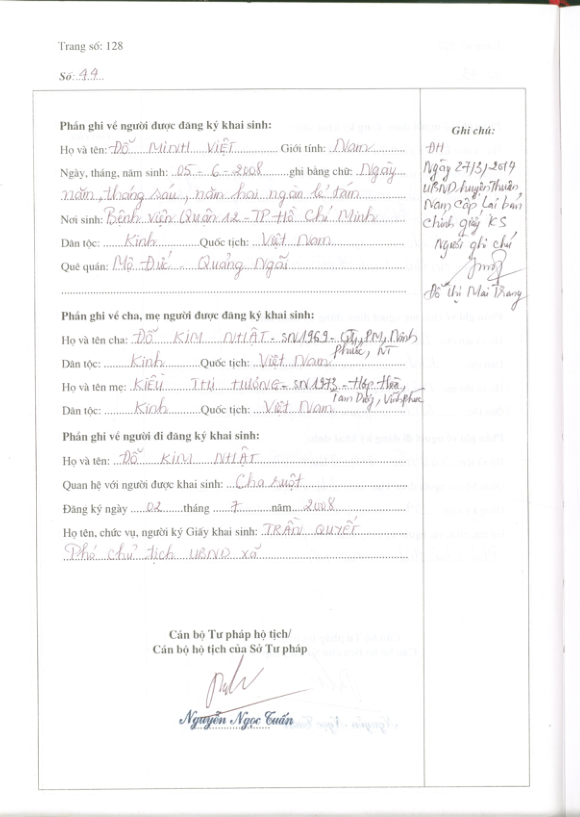 Trang số: 128
Số: 44
Phần ghi về người được đăng ký khai sinh:
Họ và tên: ĐỖ MINH VIỆT Giới tính: Nam
Ngày, tháng, năm sinh: 05 - 6 - 2008 ghi bằng chữ: Ngày
năm, tháng sáu, năm hai ngàn lẻ tám
Nơi sinh: Bệnh viện Quận 12 - TP Hồ Chí Minh
Dân tộc: Kinh Quốc tịch: Việt Nam
Quê quán: Mộ Đức Quảng Ngãi
Phần ghi về cha, mẹ người được đăng ký khai sinh:
Họ và tên cha: ĐỖ KIM NHẬT - SN 1969 - PM, Ninh
phước, NT
Dân tộc: Kinh Quốc tịch: Việt Nam
Họ và tên mẹ: KIỀU THỊ HƯƠNG - SN 1973 - Hợp Hòa,
Tam Dương, Vĩnh phúc
Dân tộc: Kinh Quốc tịch: Việt Nam
Phần ghi về người đi đăng ký khai sinh:
Họ và tên: ĐỖ KIM NHẬT
Quan hệ với người được khai sinh: Cha ruột
Đăng ký ngày 02 tháng 7 năm 2008
Họ tên, chức vụ, người ký Giấy khai sinh: TRẦN QUYẾT
Phó chủ tịch UBND xã
Cán bộ Tư pháp hộ tịch/
Cán bộ hộ tịch của Sở Tư pháp
Nguyễn Ngọc Tuấn
Ghi chú:
ĐH
Ngày 27/3/2017
UBND huyện Thuận
Nam cấp lại bản
chính giấy KS
Người ghi chú
Đỗ Thị Mai Trang